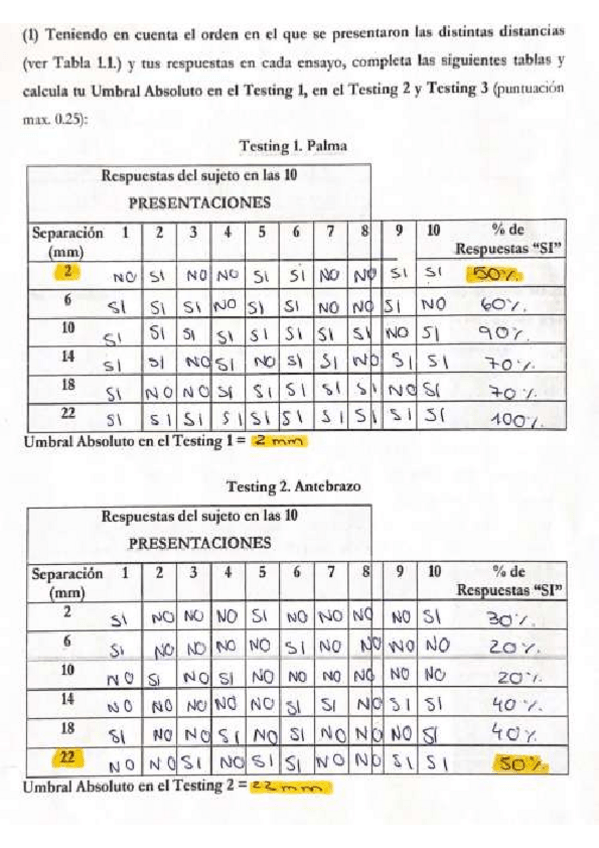 (1) Teniendo en cuenta el orden en el que se presentaron las distintas distancias
(ver Tabla 1.1.) y tus respuestas en cada ensayo, completa las siguientes tablas y
calcula tu Umbral Absoluto en el Testing 1, en el Testing 2 y Testing 3 (puntuación
max. 0.25):
Testing 1. Palma
Respuestas del sujeto en las 10
PRESENTACIONES
Separación 1 2 3 4 5 6 7 8 9 10 % de
(mm) Respuestas "SI"
2 NO SI NO NO SI SI NO NO SI SI 50%
6 SI SI SI NO SI SI NO NO SI NO 60%
10 SI SI SI SI SI SI SI SI NO SI 90%
14 SI SI NO SI NO SI SI NO SI SI 70%
18 SI NO NO SI SI SI SI SI NO SI 70%
22 SI SI SI SI SI SI SI SI SI SI 100%
Umbral Absoluto en el Testing 1 = 2 mm
Testing 2. Antebrazo
Respuestas del sujeto en las 10
PRESENTACIONES
Separación 1 2 3 4 5 6 7 8 9 10 % de
(mm) Respuestas "SI"
2 SI NO NO NO SI NO NO NO NO SI 30%
6 SI NO NO NO NO SI NO NO NO NO 20%
10 NO SI NO SI NO NO NO NO NO NO 20%
14 NO NO NO NO NO SI SI NO SI SI 40%
18 SI NO NO SI NO SI NO NO NO SI 40%
22 NO NO SI NO SI SI NO NO SI SI 50%
Umbral Absoluto en el Testing 2 = 22 mm